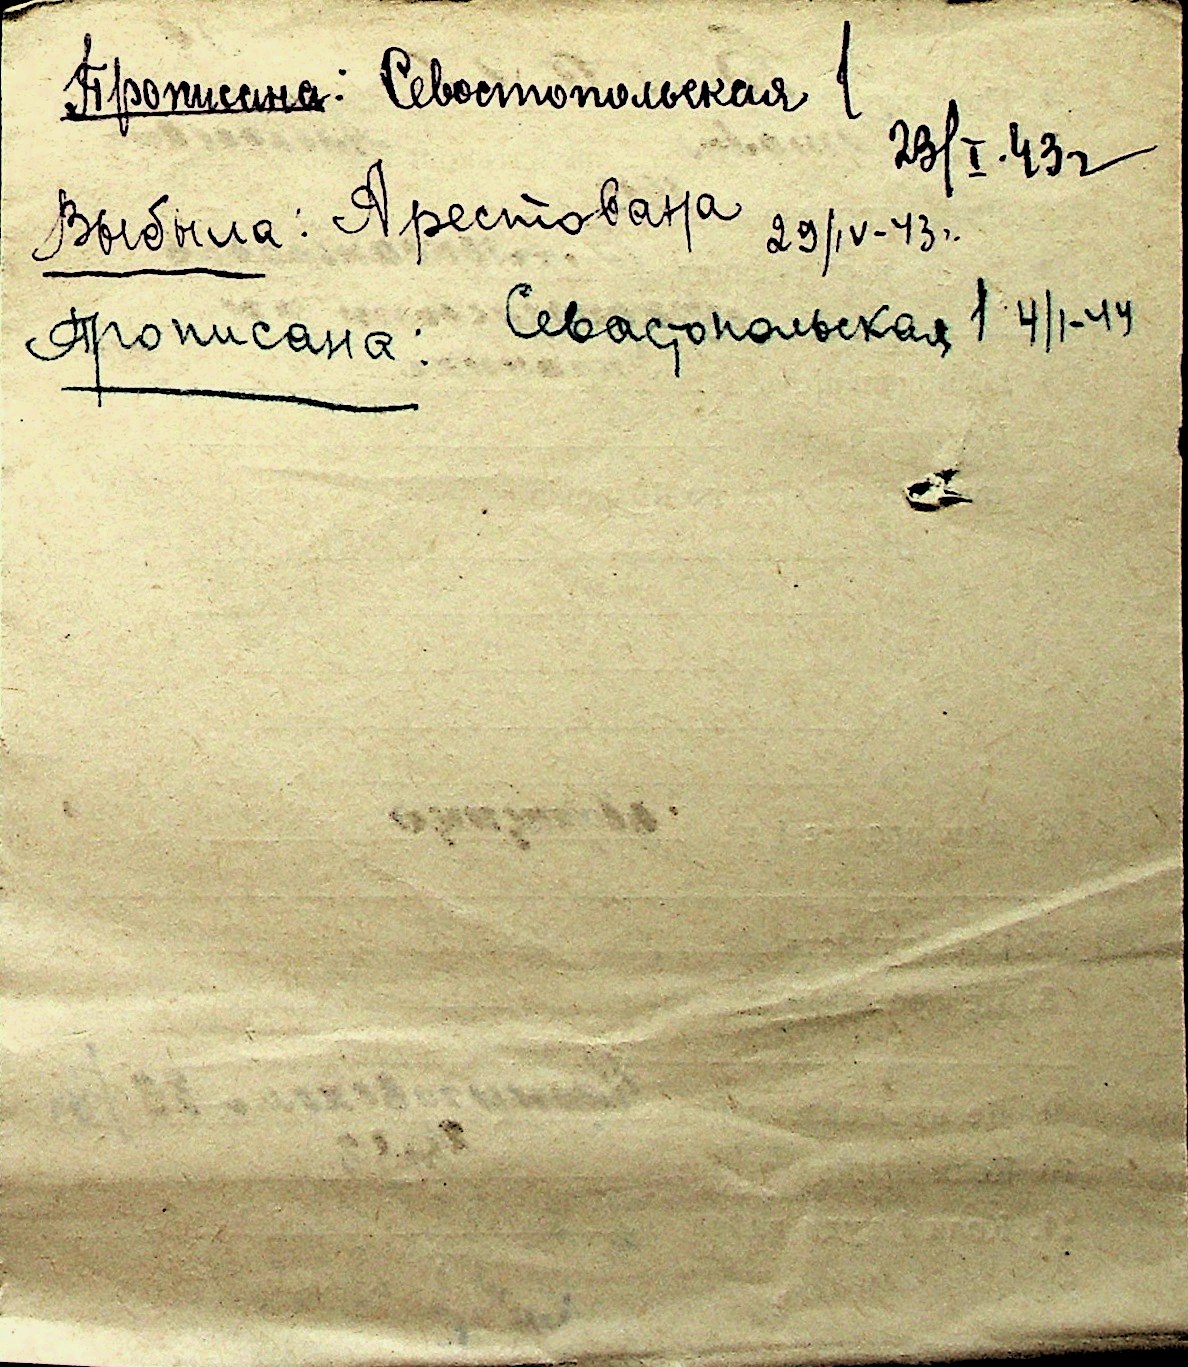 Прописана: Севостопольская 1
23/I.43г
Выбыла: Арестована 29/IV-43г.
Прописана: Севастопольская 1 4/I-44